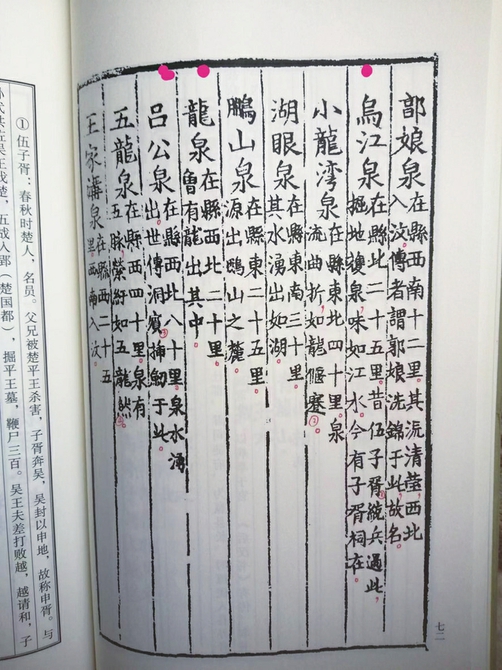 郭娘泉 在縣西南十二里。其流清瑩,西北
入汶。傳者謂郭娘洗錦于此,故名。
烏江泉 在縣北二十五里。昔伍子胥統兵過此,
掘地獲泉,味如江水。今有子胥祠在。
小龍灣泉 在縣東北四十里。泉
流曲折,如龍偃蹇②。
湖眼泉 在縣東南三十里。
其水湧出如湖。
鵬山泉 在縣東二十五里。
源出鵬山之麓。
龍泉 在縣西北二十里。
曾有龍出其中。
呂公泉 在縣西北八十里。泉水湧
出。世傳洞賓插劒于此。
五龍泉 在縣西四十里。泉有
五脉,縈紆如五龍然。
王家溝泉 在縣西二十五
里。西南入汶。
七二
①伍子胥:春秋时楚人,名员。父兄被楚平王杀害,子胥奔吴,吴封以申地,故称申胥。与
孙武共佐吴王伐楚,五战入郢(楚国都),掘平王墓,鞭尸三百。吴王夫差打败越,越请和,子